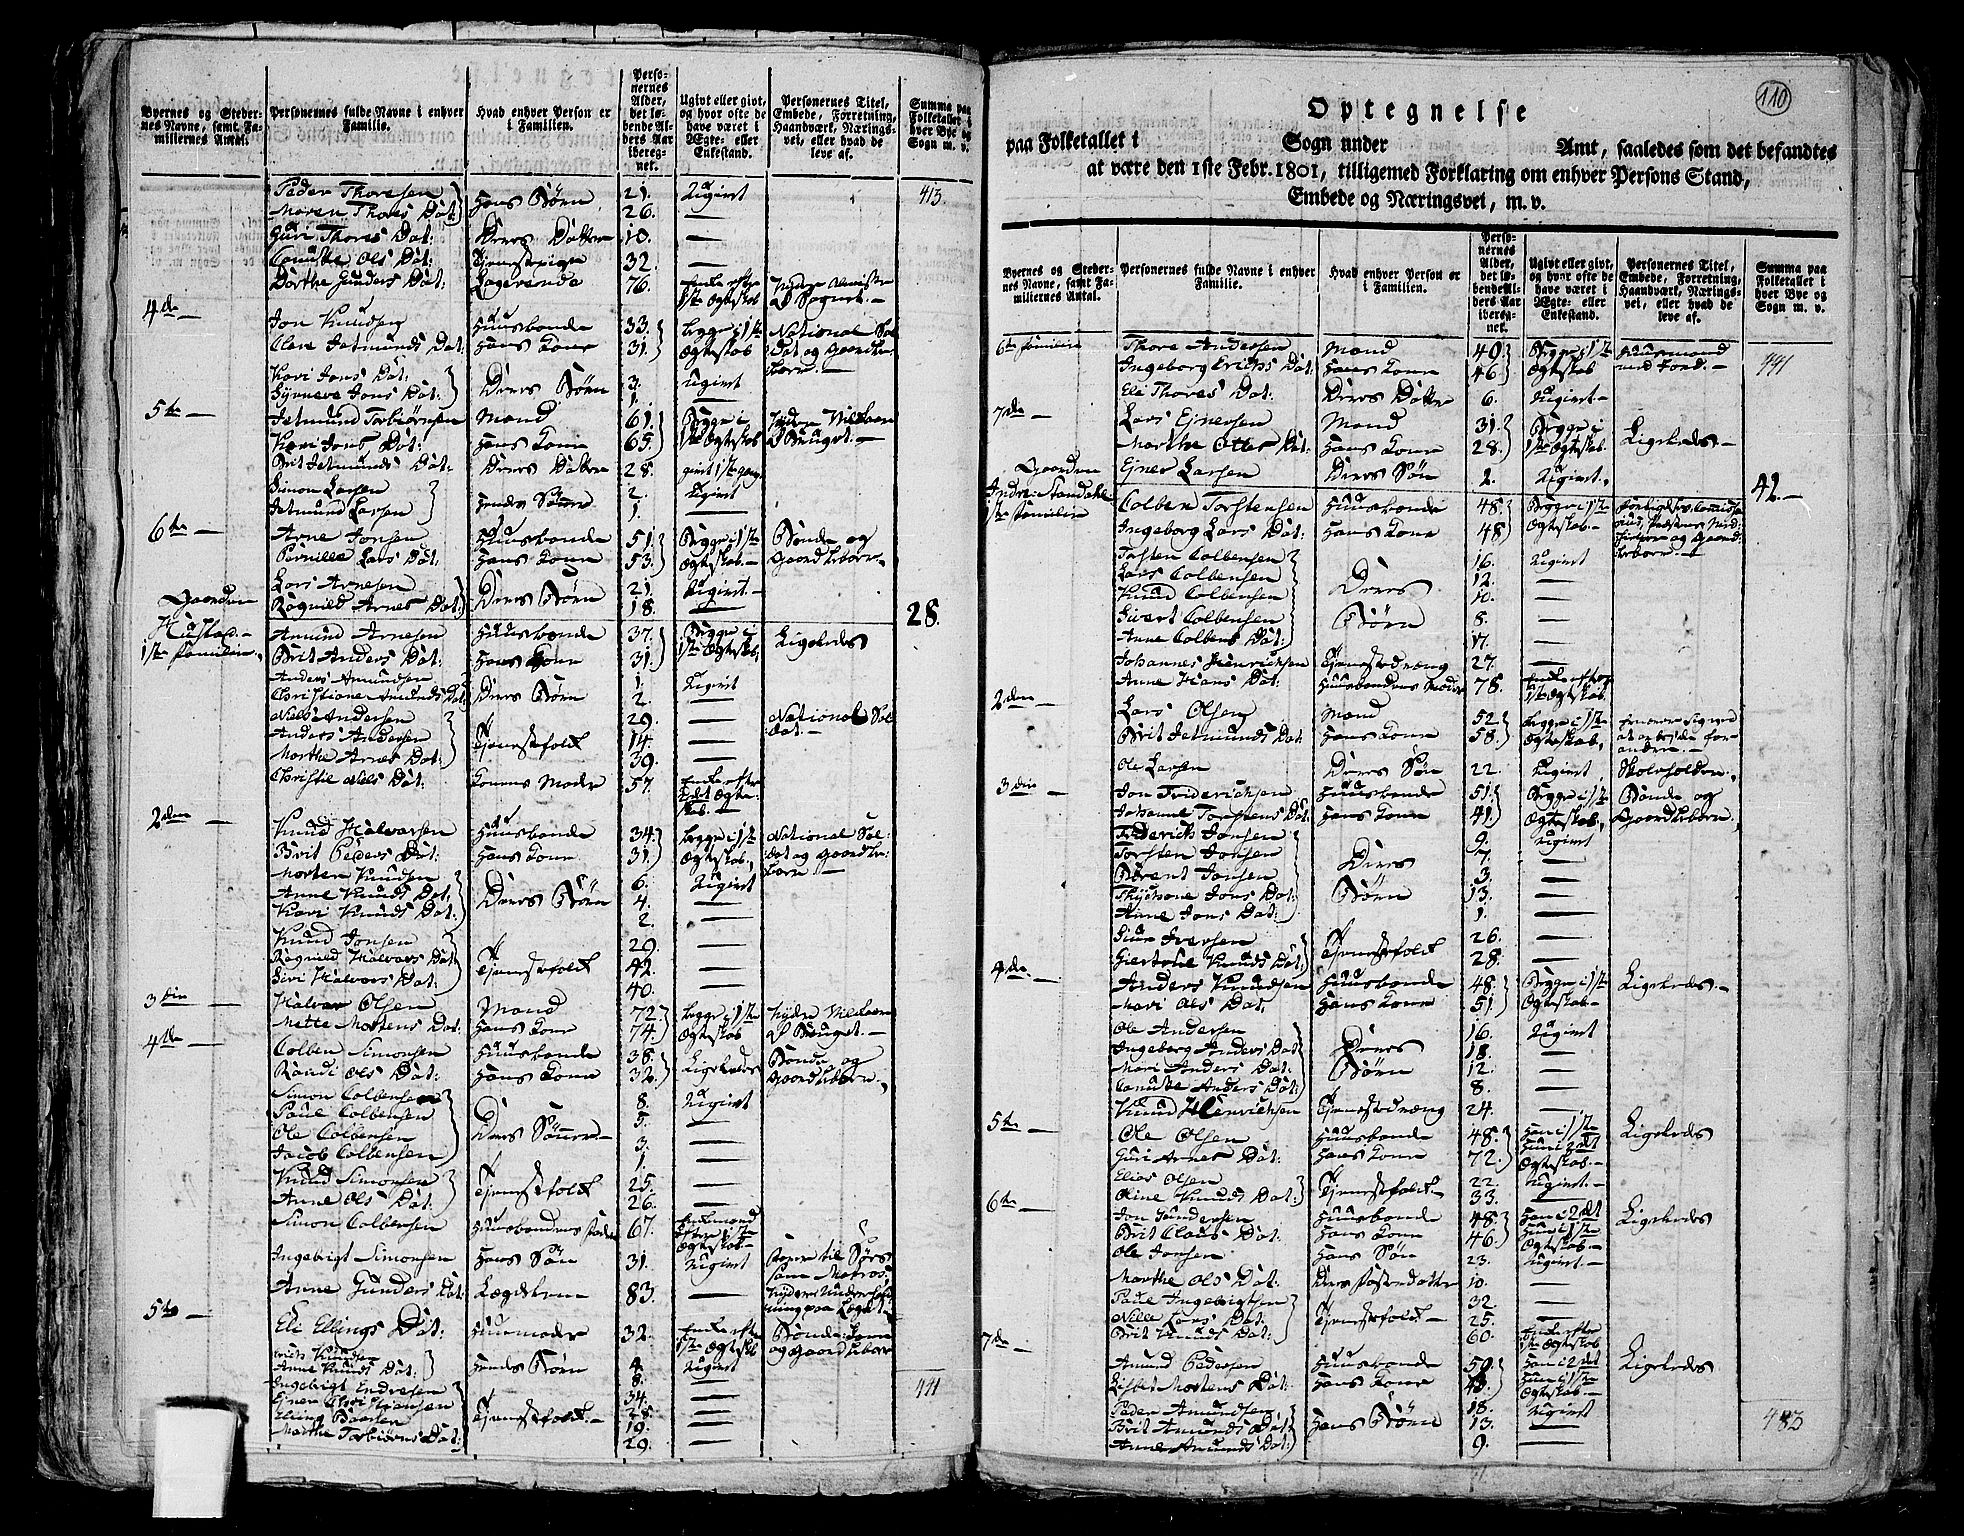 Byernes og Steder-
nes Navne, samt Fa-
miliernes Antal.
Personernes fulde Navne i enhver
Familie.
Hvad enhver Person er
i Familien.
Perso-
nernes
Alder,
det lø-
bende Al-
ders Aar
iberegnet.
Ugivt eller givt,
og hvor ofte de
have været i
Ægte- eller
Enkestand.
Personernes Titel,
Embede, Forretning,
Haandværk, Nærings-
vei, eller hvad de
leve af.
Summa paa
Folketallet i
hver Bye og
Sogn m. v.
Peder Thoresen hans Børn 21. Ugivt 413
Maren Thores Dat: 26. —
Guri Thores Dat: Deres Datter 10. —
Canutte Ols Dat: Tjenestepige 32. —
Dorthe Gunders Dat: Logerende 76. Enke efter
1ste Ægteskab
4de —
Jon Knudsen Huusbonde 33. begge i 1ste National Sol
Olave Jetmunds Dat: hans Kone 31. Ægteskab dat og Gaardbe
Kari Jons Dat: Deres Børn 3. Ugivt
Synneve Jons Dat: 1. —
5te — Jetmund Torbiørnsen Mand 61. Begge i
Kari Jons Dat: hans Kone 65. 1ste Ægteskab
Brit Jetmunds Dat: Deres Datter 28. givt 1ste gang
Simon Larsen hendes Sønner 2. Ugivt
Jetmund Larsen 1. —
6te — Arne Jonsen Huusbonde 51. Begge i 1ste Bonde og
Pernille Lars Dat: hans Kone 53. Ægteskab. — Gaardbeboer —
Lars Arnesen Deres Børn 21. Ugivt. —
Gaarden Ragnild Arnes Dat: 18. — 28.
Hustad. —
1ste Familie. Amund Arnesen Huusbonde 37. Begge i Ligeledes
Brit Anders Dat: hans Kone 31. 1ste Ægteskab
Anders Amundsen Deres Børn 1. Ugivt
Christiane Amunds Dat: 2. —
Niels Andersen Tjenestefolk 29. — National Sol
Anders Andersen 14. — dat. —
Marthe Arnes Dat: 39. —
Christie Nils Dat: Konens Moder 57. Enke efter
2det Ægte-
skab. —
2den — Knud Halvorsen Huusbonde 34. begge i 1ste National Sol
Brit Peders Dat: hans Kone 31. Ægteskab, dat og Gaardbe
Morten Knudsen Deres Børn 6. Ugivt boer —
Anne Knuds Dat: 4. —
Kari Knuds Dat: 2. —
Knud Jonsen Tjenestefolk 29. —
Ragnild Halvors Dat: 42. —
Siri Halvors Dat: 40. —
3die — Halvor Olsen Mand 72. begge i 1ste
Mette Mortens Dat: hans Kone 74. Ægteskab
4de — Colben Simonsen Huusbonde 38. Ligeledes Bonde og
Randi Ols Dat: hans Kone 32. Gaardbeboer.
Simon Colbensen Deres Sønner — 8. Ugivt
Paul Colbensen 5. —
Ole Colbensen 3. —
Jacob Colbensen 1. —
Knud Simonsen Tjenestefolk 25. —
Anne Ols Dat: 26. —
Simon Colbensen Huusbondens Fader 67. Enkemand
efter 1ste
Ægteskab. —
Ingebrigt Simonsen hans Søn 31. Ugivt
Anne Gunders Dat: Lægdslem 83. —
5te — Eli Ellings Dat: Huusmoder 32. Enke efter Bonde Kone
1ste Ægteskab og Gaardbeboer
Knudsen hendes Børn 4. Ugivt
Anne Knuds Dat: 8. — 441
Ingebrigt Endresen Tjenestefolk — 34. —
Ejner Christiansen 28. —
Elling Baarsen 19. —
Marthe Torbiørns Dat: 29. —
110
Optegnelse
paa Folketallet i Sogn under Amt, saaledes som det befandtes
at være den 1ste Febr. 1801, tilligemed Forklaring om enhver Persons Stand,
Embede og Næringsvei, m. v.
Byernes og Steder-
nes Navne, samt Fa-
miliernes Antal.
Personernes fulde Navne i enhver
Familie.
Hvad enhver Person er
i Familien.
Perso-
nernes
Alder,
det lø-
bende Al-
ders Aar
iberegnet.
Ugivt eller givt,
og hvor ofte de
have været i
Ægte- eller
Enkestand.
Personernes Titel,
Embede, Forretning,
Haandværk, Nærings-
vei, eller hvad de
leve af.
Summa paa
Folketallet i
hver Bye og
Sogn m. v.
6te Familie Thore Andersen Mand 49. Begge i 1ste Huusmand 441
Ingeborg Erichs Dat: hans Kone 46. Ægteskab med Jord. —
Eli Thores Dat: Deres Datter 6. Ugivt —
7de — Lars Ejnersen Mand 31. Begge i Ligeledes —
Marthe Ottes Dat: hans Kone 28. 1ste Ægteskab —
Gaarden Ejner Larsen Deres Søn 2. Ugivt. 42. —
1ste Familie Colben Torstensen Huusbonde 48. Begge i 1ste
Ingeborg Lars Dat: hans Kone 48. Ægteskab. —
Torsten Colbensen Deres Børn 16. Ugivt
Lars Colbensen 12. —
Knud Colbensen 10. —
Sivert Colbensen 8. —
Anne Colbens Dat: 17. —
Johannes Henrichsen Tjenestedreng 27. —
Anne Hans Dat: Huusbondens Moder 78. Enke efter
1ste Ægteskab
2den — Lars Olsen Mand 52. begge i 1ste
Brit Jetmunds Dat: hans Kone 58. Ægteskab,
Ole Larsen Deres Søn 22. Ugivt Skoleholder,
3die — Jon Friderichsen Huusbonde 51. Begge i 1ste Bonde og
Johanne Torstens Dat: hans Kone 41. Ægteskab, Gaardbeboer,
Friderich Jonsen Deres Børn 9. Ugivt
Torsten Jonsen 7. —
Berent Jonsen 3. —
Thychone Jons Dat: 13. —
Anne Jons Dat: 1. —
Siur Iversen Tjenestefolk 26. —
Giertrue Knuds Dat: 28. —
4de — Anders Knudsen Huusbonde 48. Begge i 1ste Ligeledes. —
Mari Ols Dat: hans Kone 51. Ægteskab. —
Ole Andersen Deres Børn 16. Ugivt
Ingeborg Anders Dat: 18. —
Mari Anders Dat: 12. —
Canutte Anders Dat: 8. —
Knud Henrichsen Tjenestedreng 24. —
5te — Ole Olsen Huusbonde 48. Han i 1ste Ligeledes
Guri Arnes Dat: hans Kone 72. Hun i 2det
Ægteskab. —
Elias Olsen Tjenestefolk — 22. Ugivt —
Oline Knuds Dat: 33. —
6te — Jon Gundersen Huusbonde 48. Han i 2det Ligeledes
Brit Claus Dat: hans Kone 46. Hun i 1ste
Ægteskab —
Ole Jonsen hans Søn 23. Ugivt
Marthe Ols Dat: Deres Fosterdatter 10. —
Paul Ingebrigtsen Tjenestefolk — 32. —
Nille Lars Dat: 25. —
Brit Knuds Dat: 60. Enke efter
1ste Ægteskab
7de — Amund Pedersen Huusbonde 50. Han i 2det Ligeledes
Lisbet Mortens Dat: hans Kone 48. Hun i 1ste
Ægteskab —
Peder Amundsen hans Børn 18. Ugivt 483
Brit Amunds Dat: 13. —
Anne Amunds Dat: 9. —